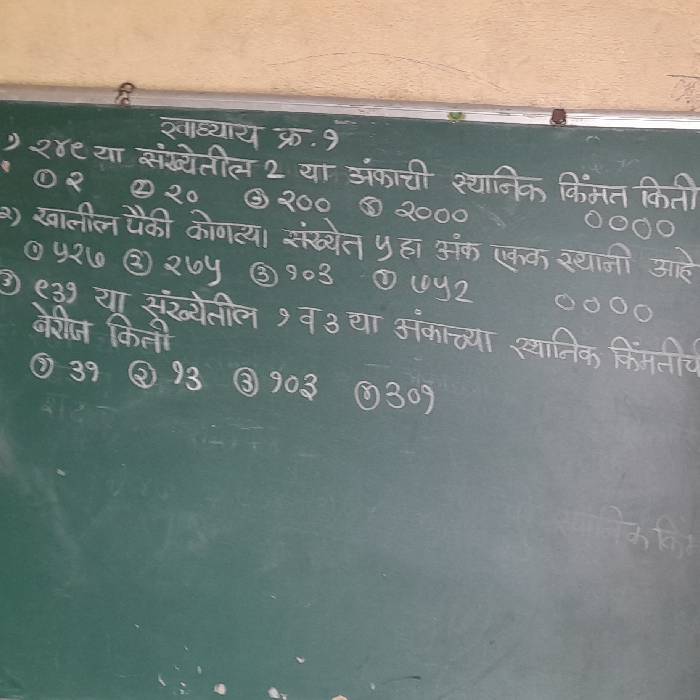 स्वाध्याय क्र.१
१) २४९ या संख्येतील 2 या अंकाची स्थानिक किंमत किती
① २ ② २० ③ २०० ④ २००० ००००
२) खालील पैकी कोणत्या संख्येत ५ हा अंक एकक स्थानी आहे
① ५२७ ② २७५ ③ १०३ ④ ७५2 ००००
③ ९३१ या संख्येतील १ व ३ या अंकाच्या स्थानिक किंमतीची
बेरीज किती
① ३१ ② १३ ③ १०३ ④ ३०१